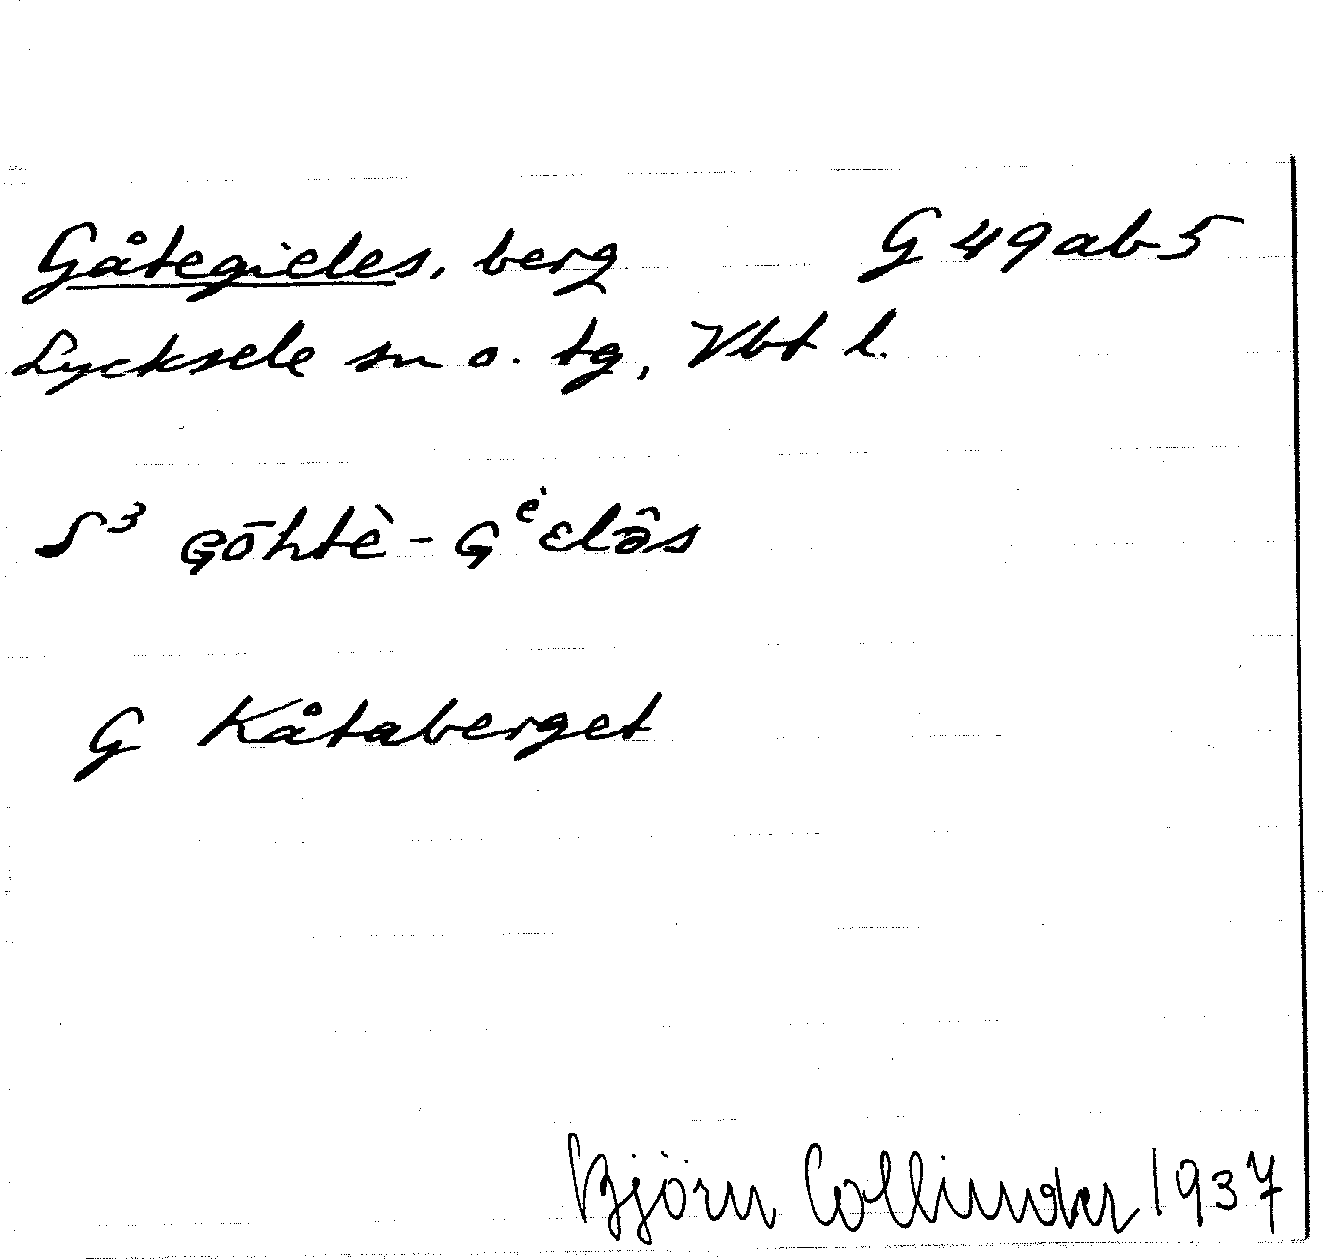 Gåtegieles, berg G 49ab5
Lycksele sn o. tg, Vbt l.
S³ Gōhtè-Gᵉ̇ɛlə̂s
G Kåtaberget
Björn Collinder 1937